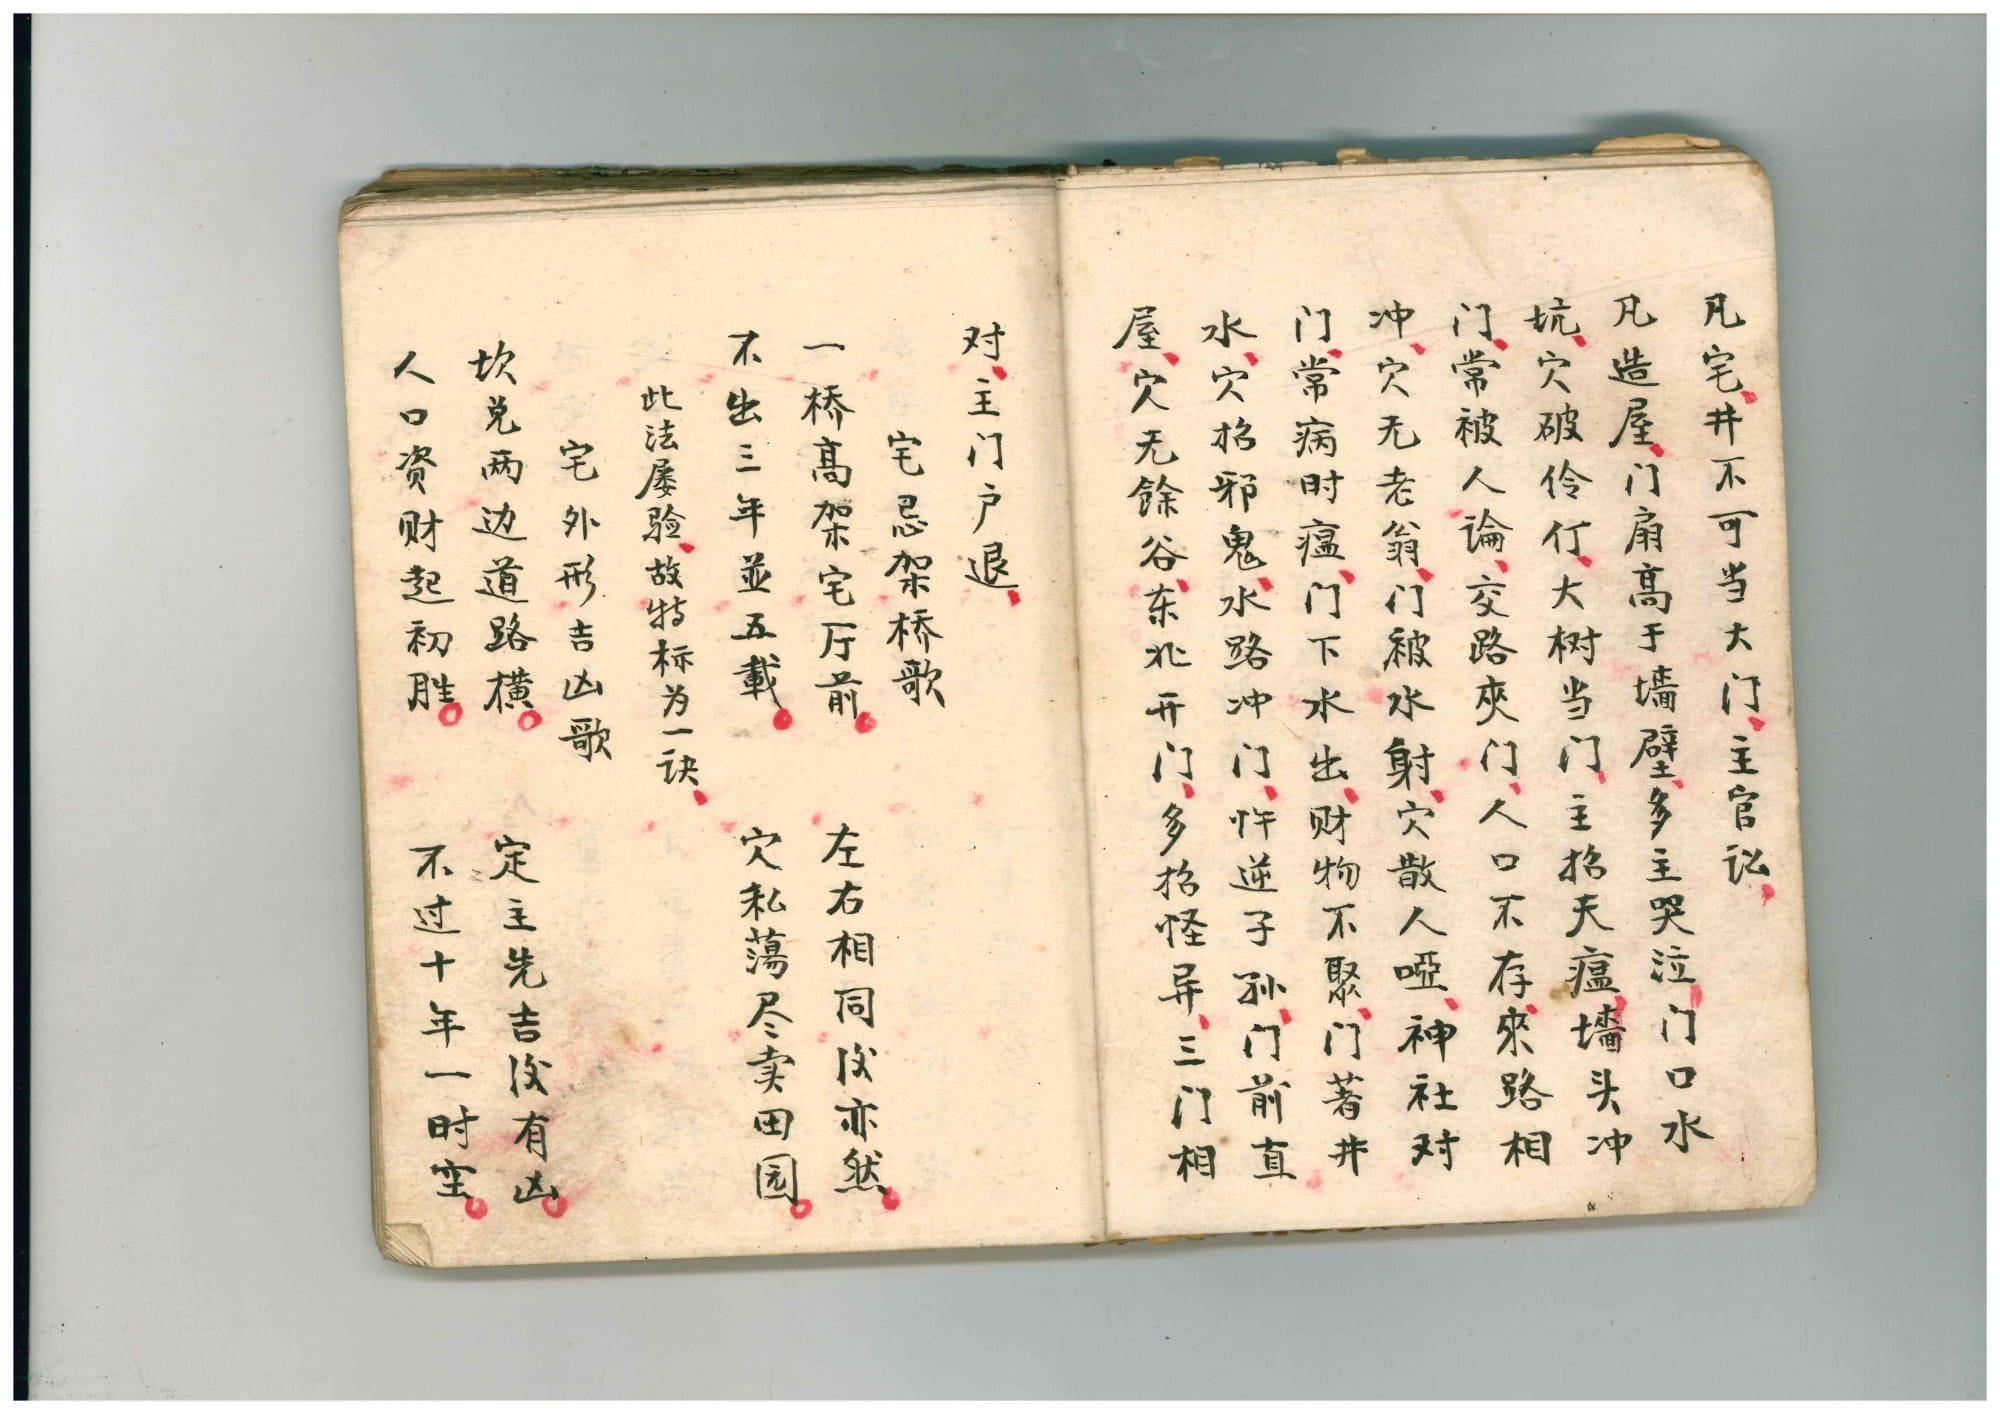 凡宅、井不可当大门、主官讼、
凡造屋、门扇高于墻壁、多主哭泣、门口水
坑、穴破伶仃、大树当门、主招天瘟、墻头冲
门、常被人論、交路夾门、人口不存、來路相
冲、穴无老翁、门被水射、穴散人啞、神社对
门、常病时瘟、门下水出、财物不聚、门著井
水、穴招邪鬼、水路冲门、忤逆子孙、门前直
屋、穴无餘谷、东北开门、多招怪异、三门相
对、主门户退、
宅忌架桥歌
一桥高架宅厅前。左右相同後亦然。
不出三年並五載。穴私蕩尽卖田园。
此法屡验、故特标为一诀、
宅外形吉凶歌
坎兑两边道路橫。定主先吉後有凶。
人口资财起初胜。不过十年一时空。